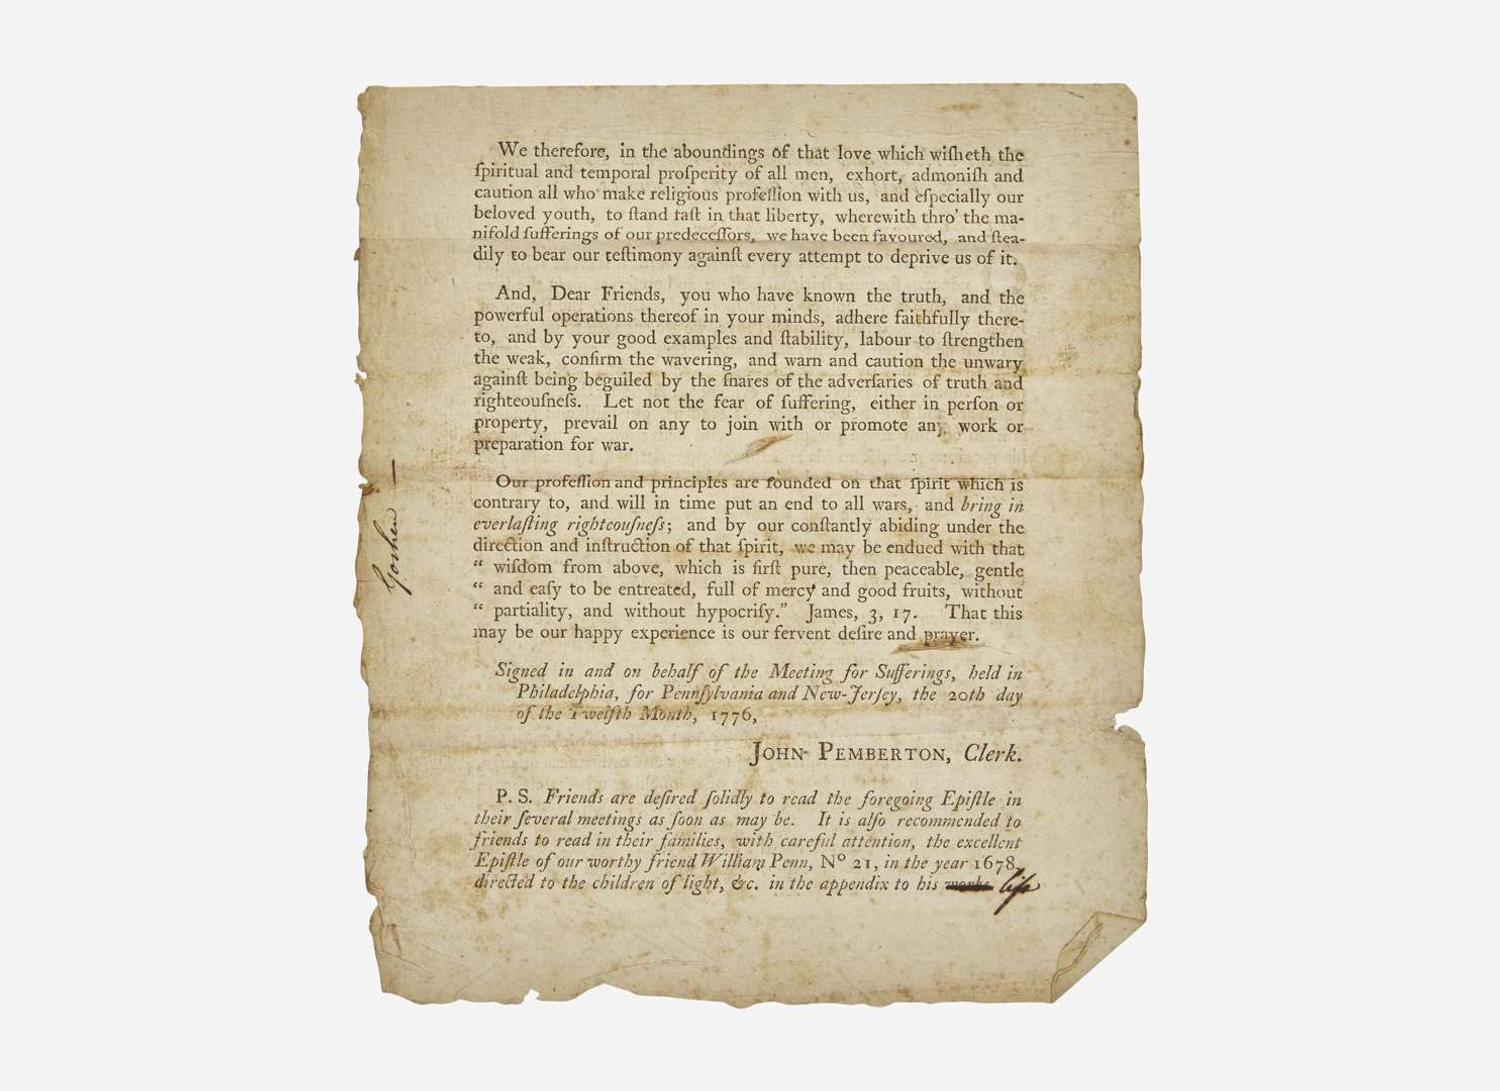 We therefore, in the aboundings of that love which wiſheth the
ſpiritual and temporal proſperity of all men, exhort, admoniſh and
caution all who make religious profeſſion with us, and eſpecially our
beloved youth, to ſtand faſt in that liberty, wherewith thro' the ma-
nifold ſufferings of our predeceſſors, we have been favoured, and ſtea-
dily to bear our teſtimony againſt every attempt to deprive us of it.
And, Dear Friends, you who have known the truth, and the
powerful operations thereof in your minds, adhere faithfully there-
to, and by your good examples and ſtability, labour to ſtrengthen
the weak, confirm the wavering, and warn and caution the unwary
againſt being beguiled by the ſnares of the adverſaries of truth and
righteouſneſs. Let not the fear of ſuffering, either in perſon or
property, prevail on any to join with or promote any work or
preparation for war.
Our profeſſion and principles are founded on that ſpirit which is
contrary to, and will in time put an end to all wars, and bring in
everlaſting righteouſneſs; and by our conſtantly abiding under the
direction and inſtruction of that ſpirit, we may be endued with that
“ wiſdom from above, which is firſt pure, then peaceable, gentle
“ and eaſy to be entreated, full of mercy and good fruits, without
“ partiality, and without hypocriſy.” James, 3, 17. That this
may be our happy experience is our fervent deſire and prayer.
Signed in and on behalf of the Meeting for Sufferings, held in
Philadelphia, for Pennſylvania and New-Jerſey, the 20th day
of the Twelfth Month, 1776,
JOHN PEMBERTON, Clerk.
P. S. Friends are deſired ſolidly to read the foregoing Epiſtle in
their ſeveral meetings as ſoon as may be. It is alſo recommended to
friends to read in their families, with careful attention, the excellent
Epiſtle of our worthy friend William Penn, Nº 21, in the year 1678,
directed to the children of light, &c. in the appendix to his works life
Goshen